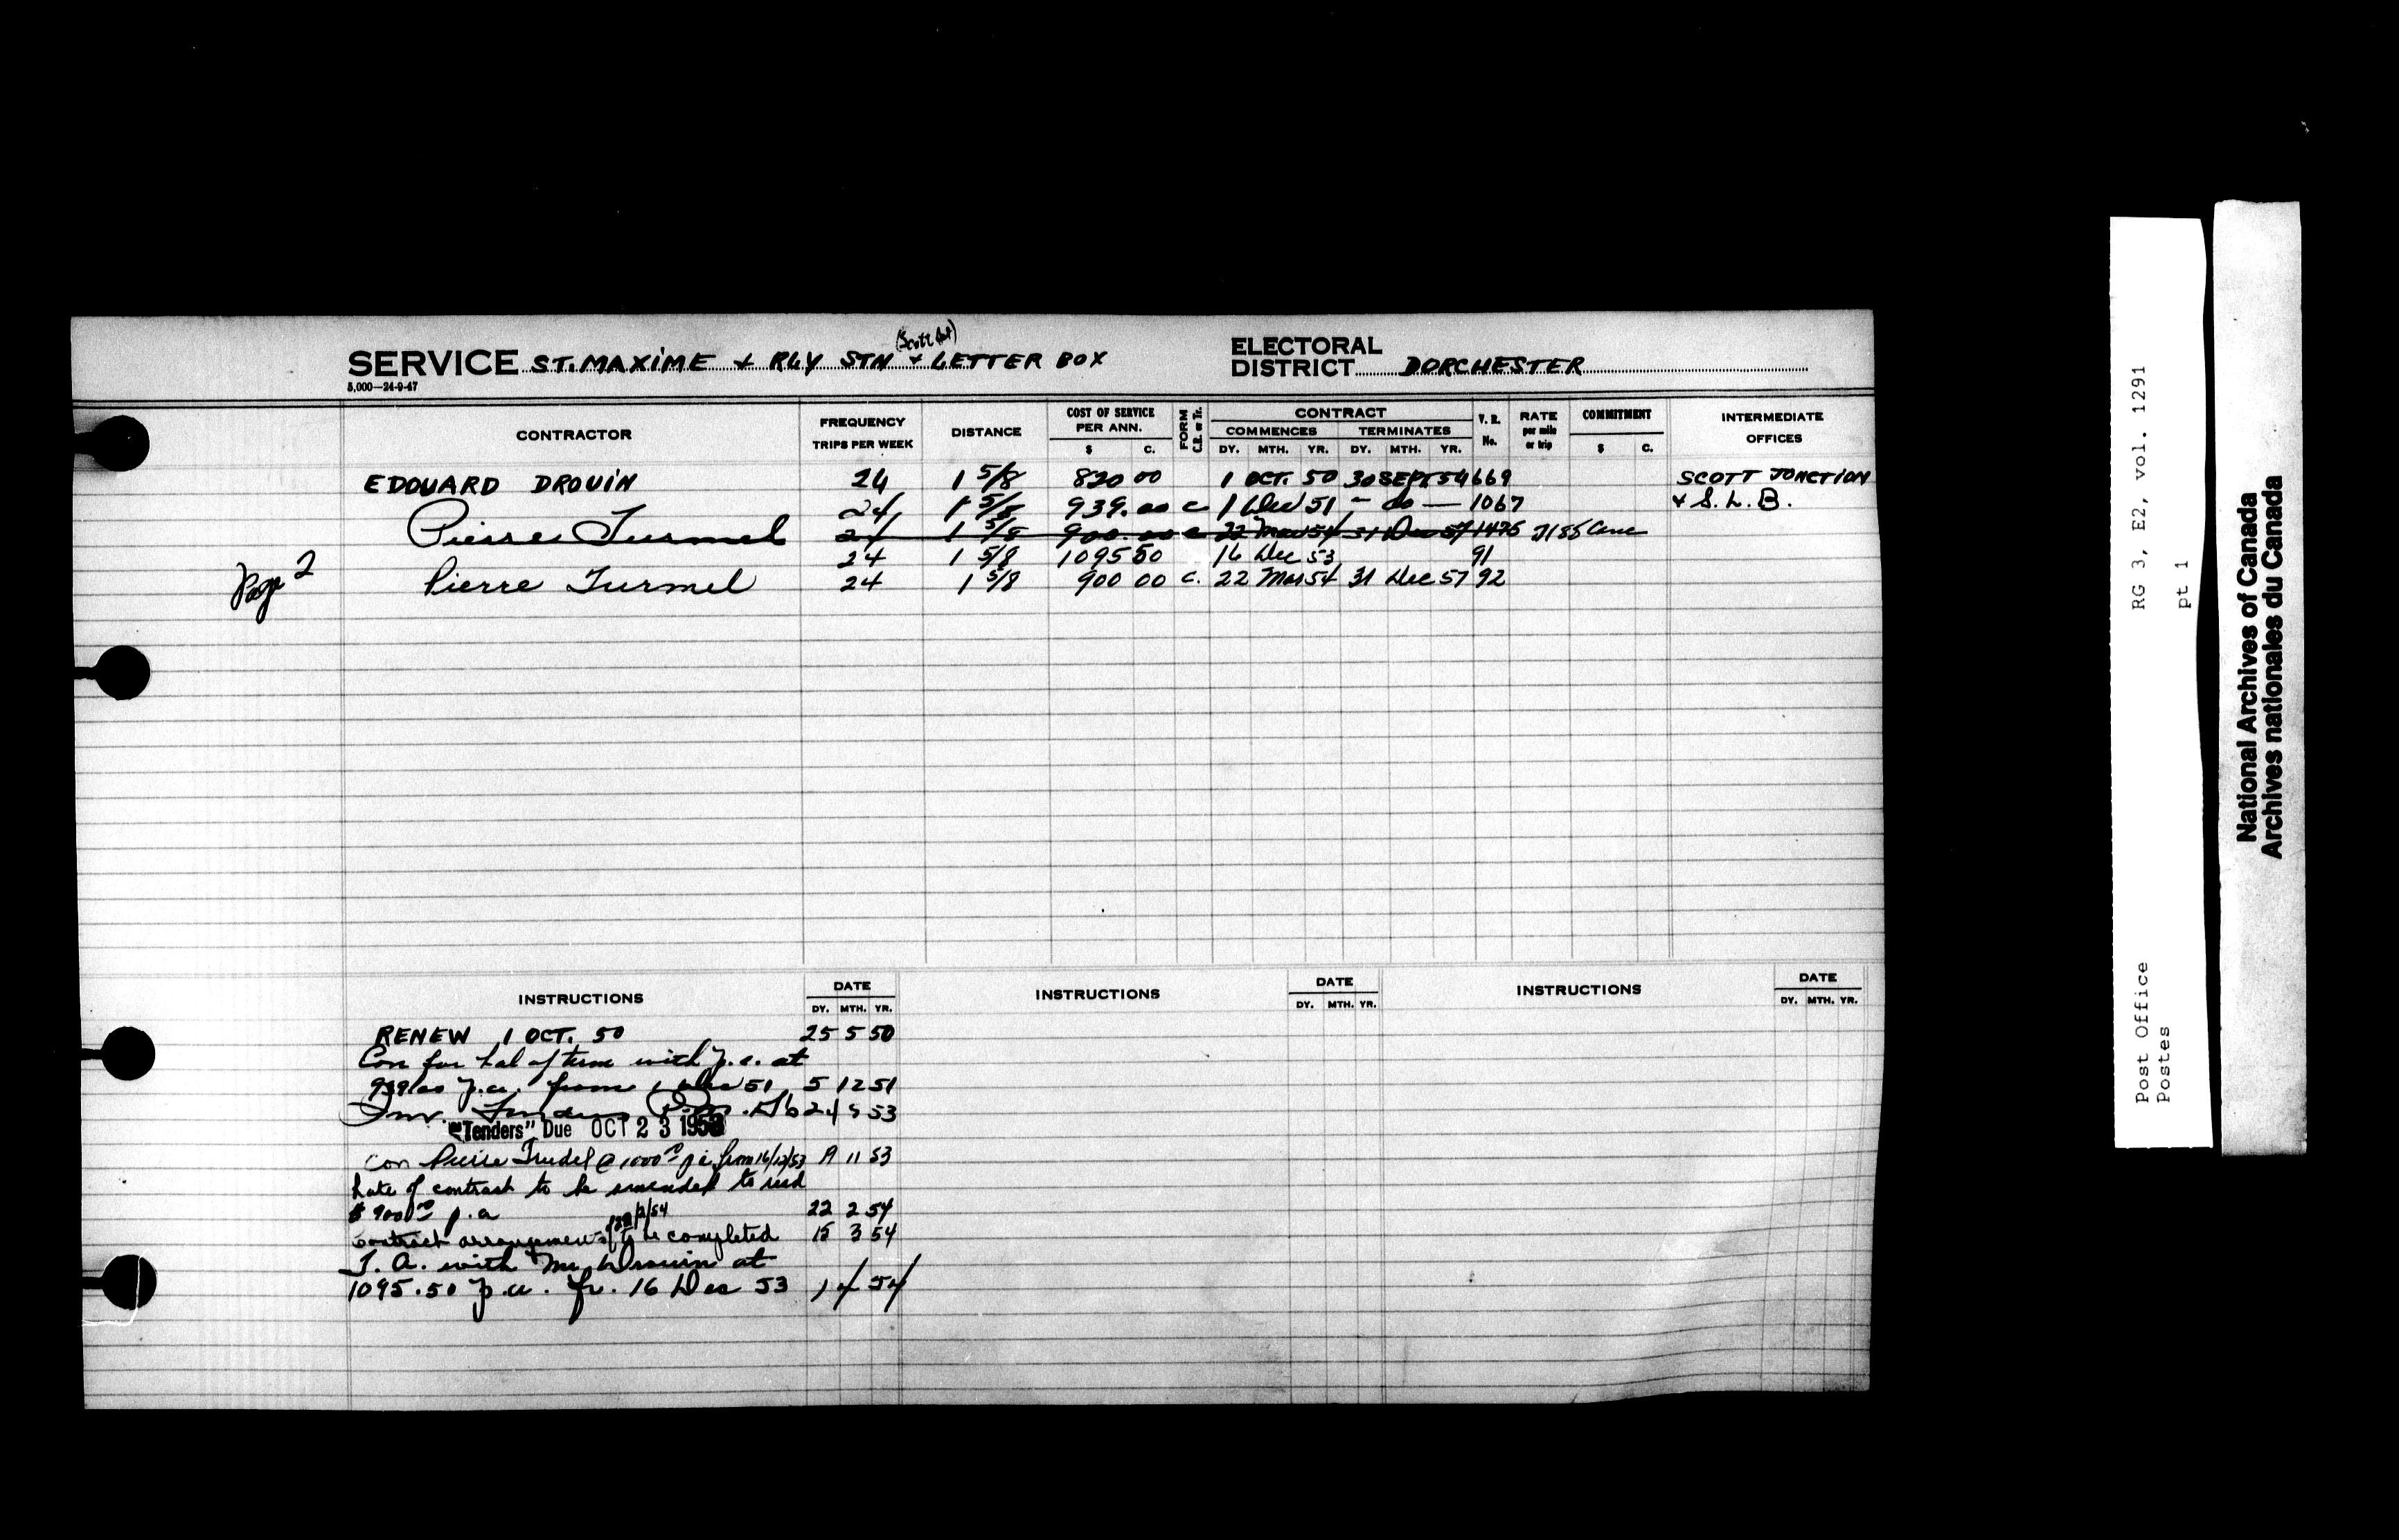 (Scott Jct)
SERVICE ST. MAXIME & RLY STN & LETTER BOX
ELECTORAL DISTRICT DORCHESTER
5,000—24-9-47
CONTRACTOR FREQUENCY TRIPS PER WEEK DISTANCE COST OF SERVICE PER ANN. $ C. FORM C.R. or Tr. CONTRACT COMMENCES DY. MTH. YR. TERMINATES DY. MTH. YR. V. R. No. RATE per mile or trip COMMITMENT $ C. INTERMEDIATE OFFICES
EDOUARD DROUIN 24 1 5/8 820 00 1 OCT. 50 30 SEPT 54 669 SCOTT JONCTION
24 1 5/8 939.00 c 1 Dec 51 - do - 1067 & S.L.B.
Pierre Turmel 24 1 5/8 900.00 c 22 Mar 54 31 Dec 57 1475
24 1 5/8 1095 50 16 Dec 53 91
Page 2 Pierre Turmel 24 1 5/8 900 00 c. 22 Mar 54 31 Dec 57 92
INSTRUCTIONS DATE DY. MTH. YR. INSTRUCTIONS DATE DY. MTH. YR. INSTRUCTIONS DATE DY. MTH. YR.
RENEW 1 OCT. 50 25 5 50
Con for bal of term with p.c. at
939.00 p.a. from 1 Dec 51 5 12 51
Inv. Tenders 53
"Tenders" Due OCT 23 1953
Con Pierre Trudel @ 1000 from 16/12/53 11 53
of contract to be amended to read
$ 900.00 p.a 22 2 54
Contract arrangements to be completed 15 3 54
T. A. with Mr Drouin at
1095.50 p.a. fr. 16 Dec 53 1 4 54
Post Office RG 3, E2, vol. 1291
Postes pt 1
National Archives of Canada
Archives nationales du Canada